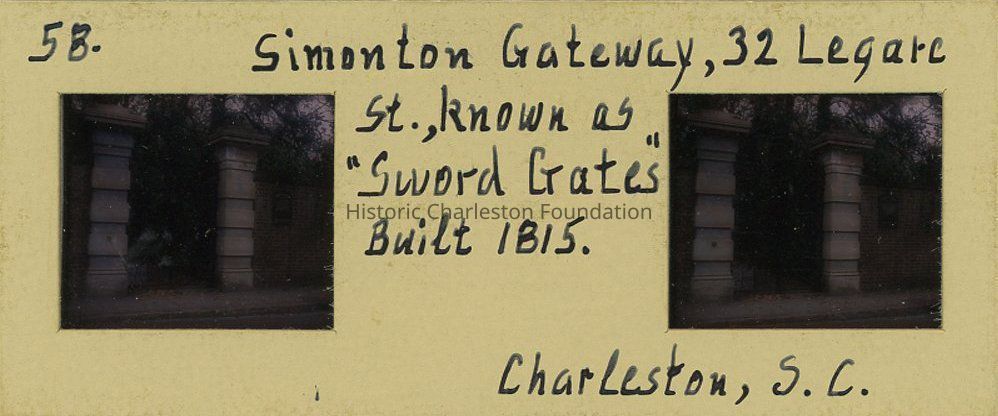 58. Simonton Gateway, 32 Legare
St., known as
"Sword Gates"
Historic Charleston Foundation
Built 1815.
Charleston, S. C.